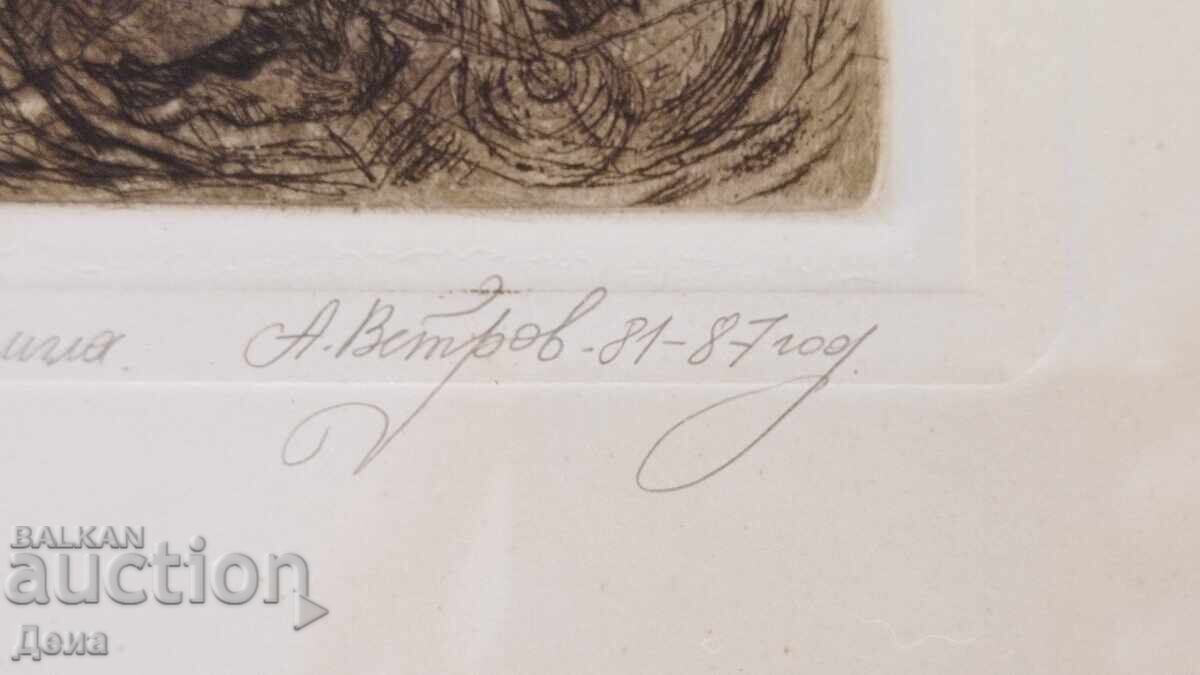 А. Ветров. - 81-87 год.
BALKAN
auction
Деа